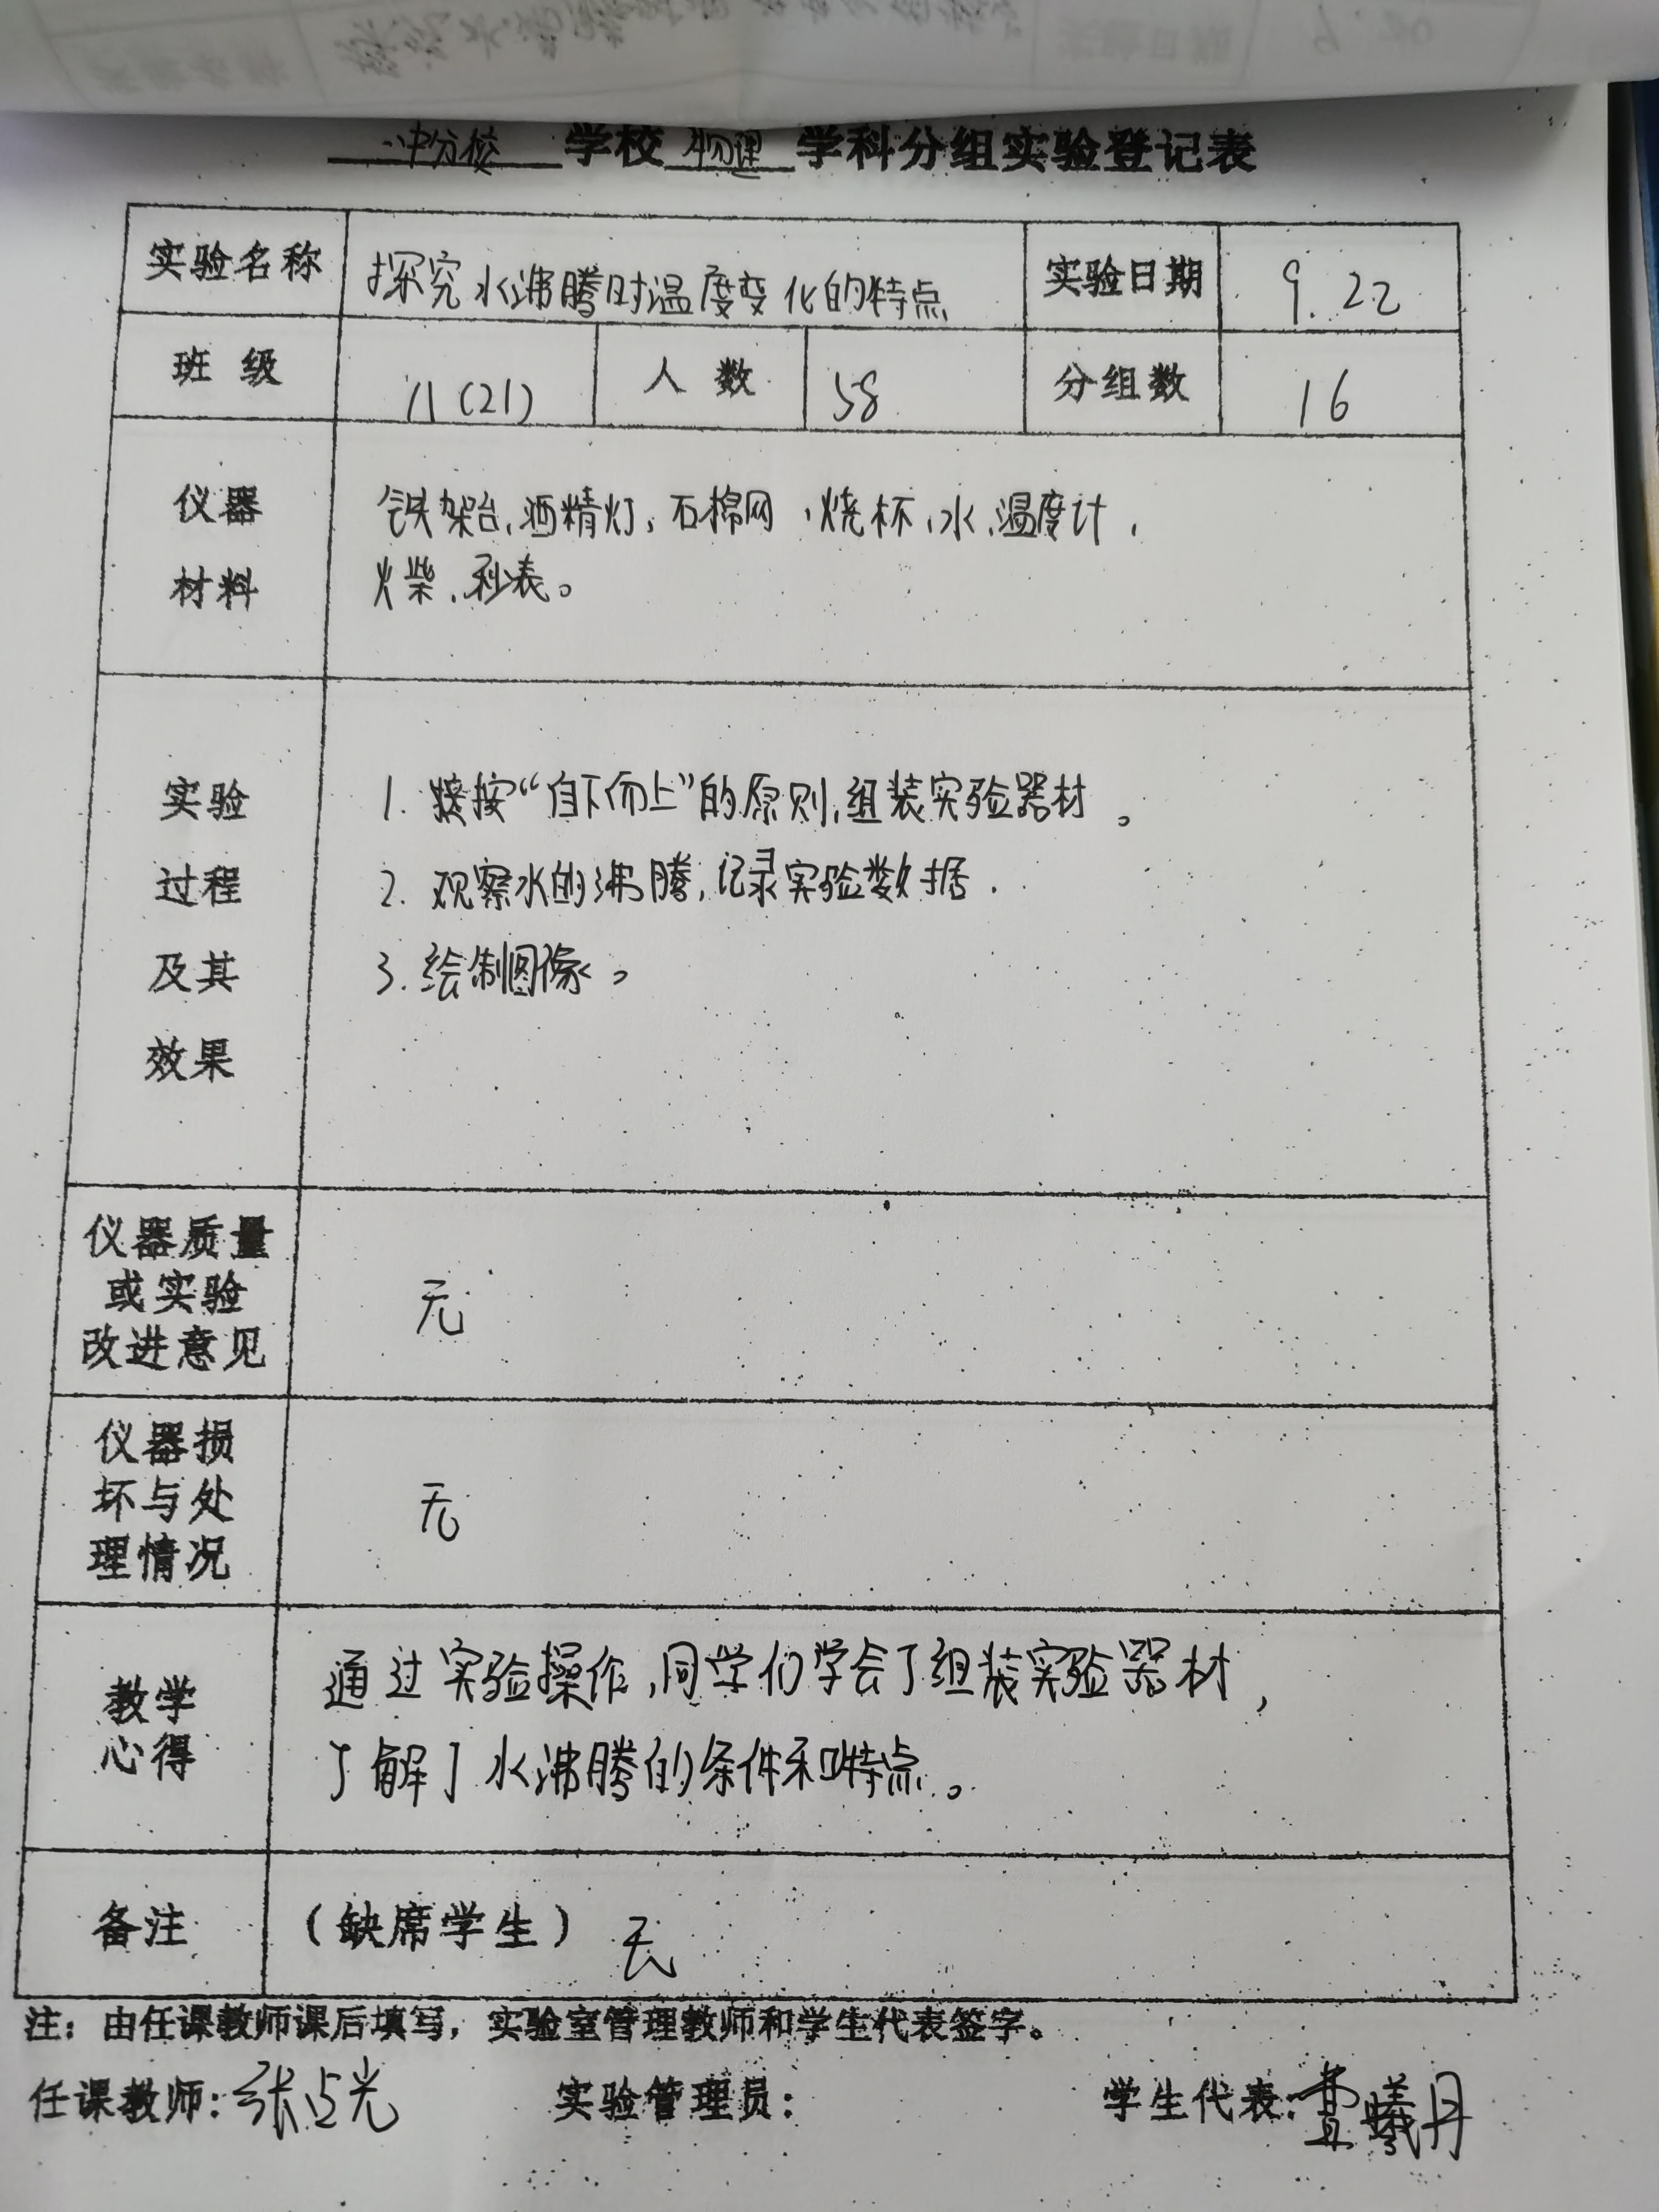 中分校 学校 物理 学科分组实验登记表
实验名称 探究水沸腾时温度变化的特点 实验日期 9.22
班级 11(21) 人数 58 分组数 16
仪器材料
铁架台、酒精灯、石棉网、烧杯、水、温度计、
火柴、秒表。
实验过程及其效果
1. 按“自下而上”的原则,组装实验器材。
2. 观察水的沸腾,记录实验数据.
3. 绘制图像。
仪器质量
或实验
改进意见
无
仪器损
坏与处
理情况
无
教学
心得
通过实验操作,同学们学会了组装实验器材,
了解了水沸腾的条件和特点。
备注 (缺席学生) 无
注:由任课教师课后填写,实验室管理教师和学生代表签字。
任课教师:张占光 实验管理员: 学生代表: 曦月